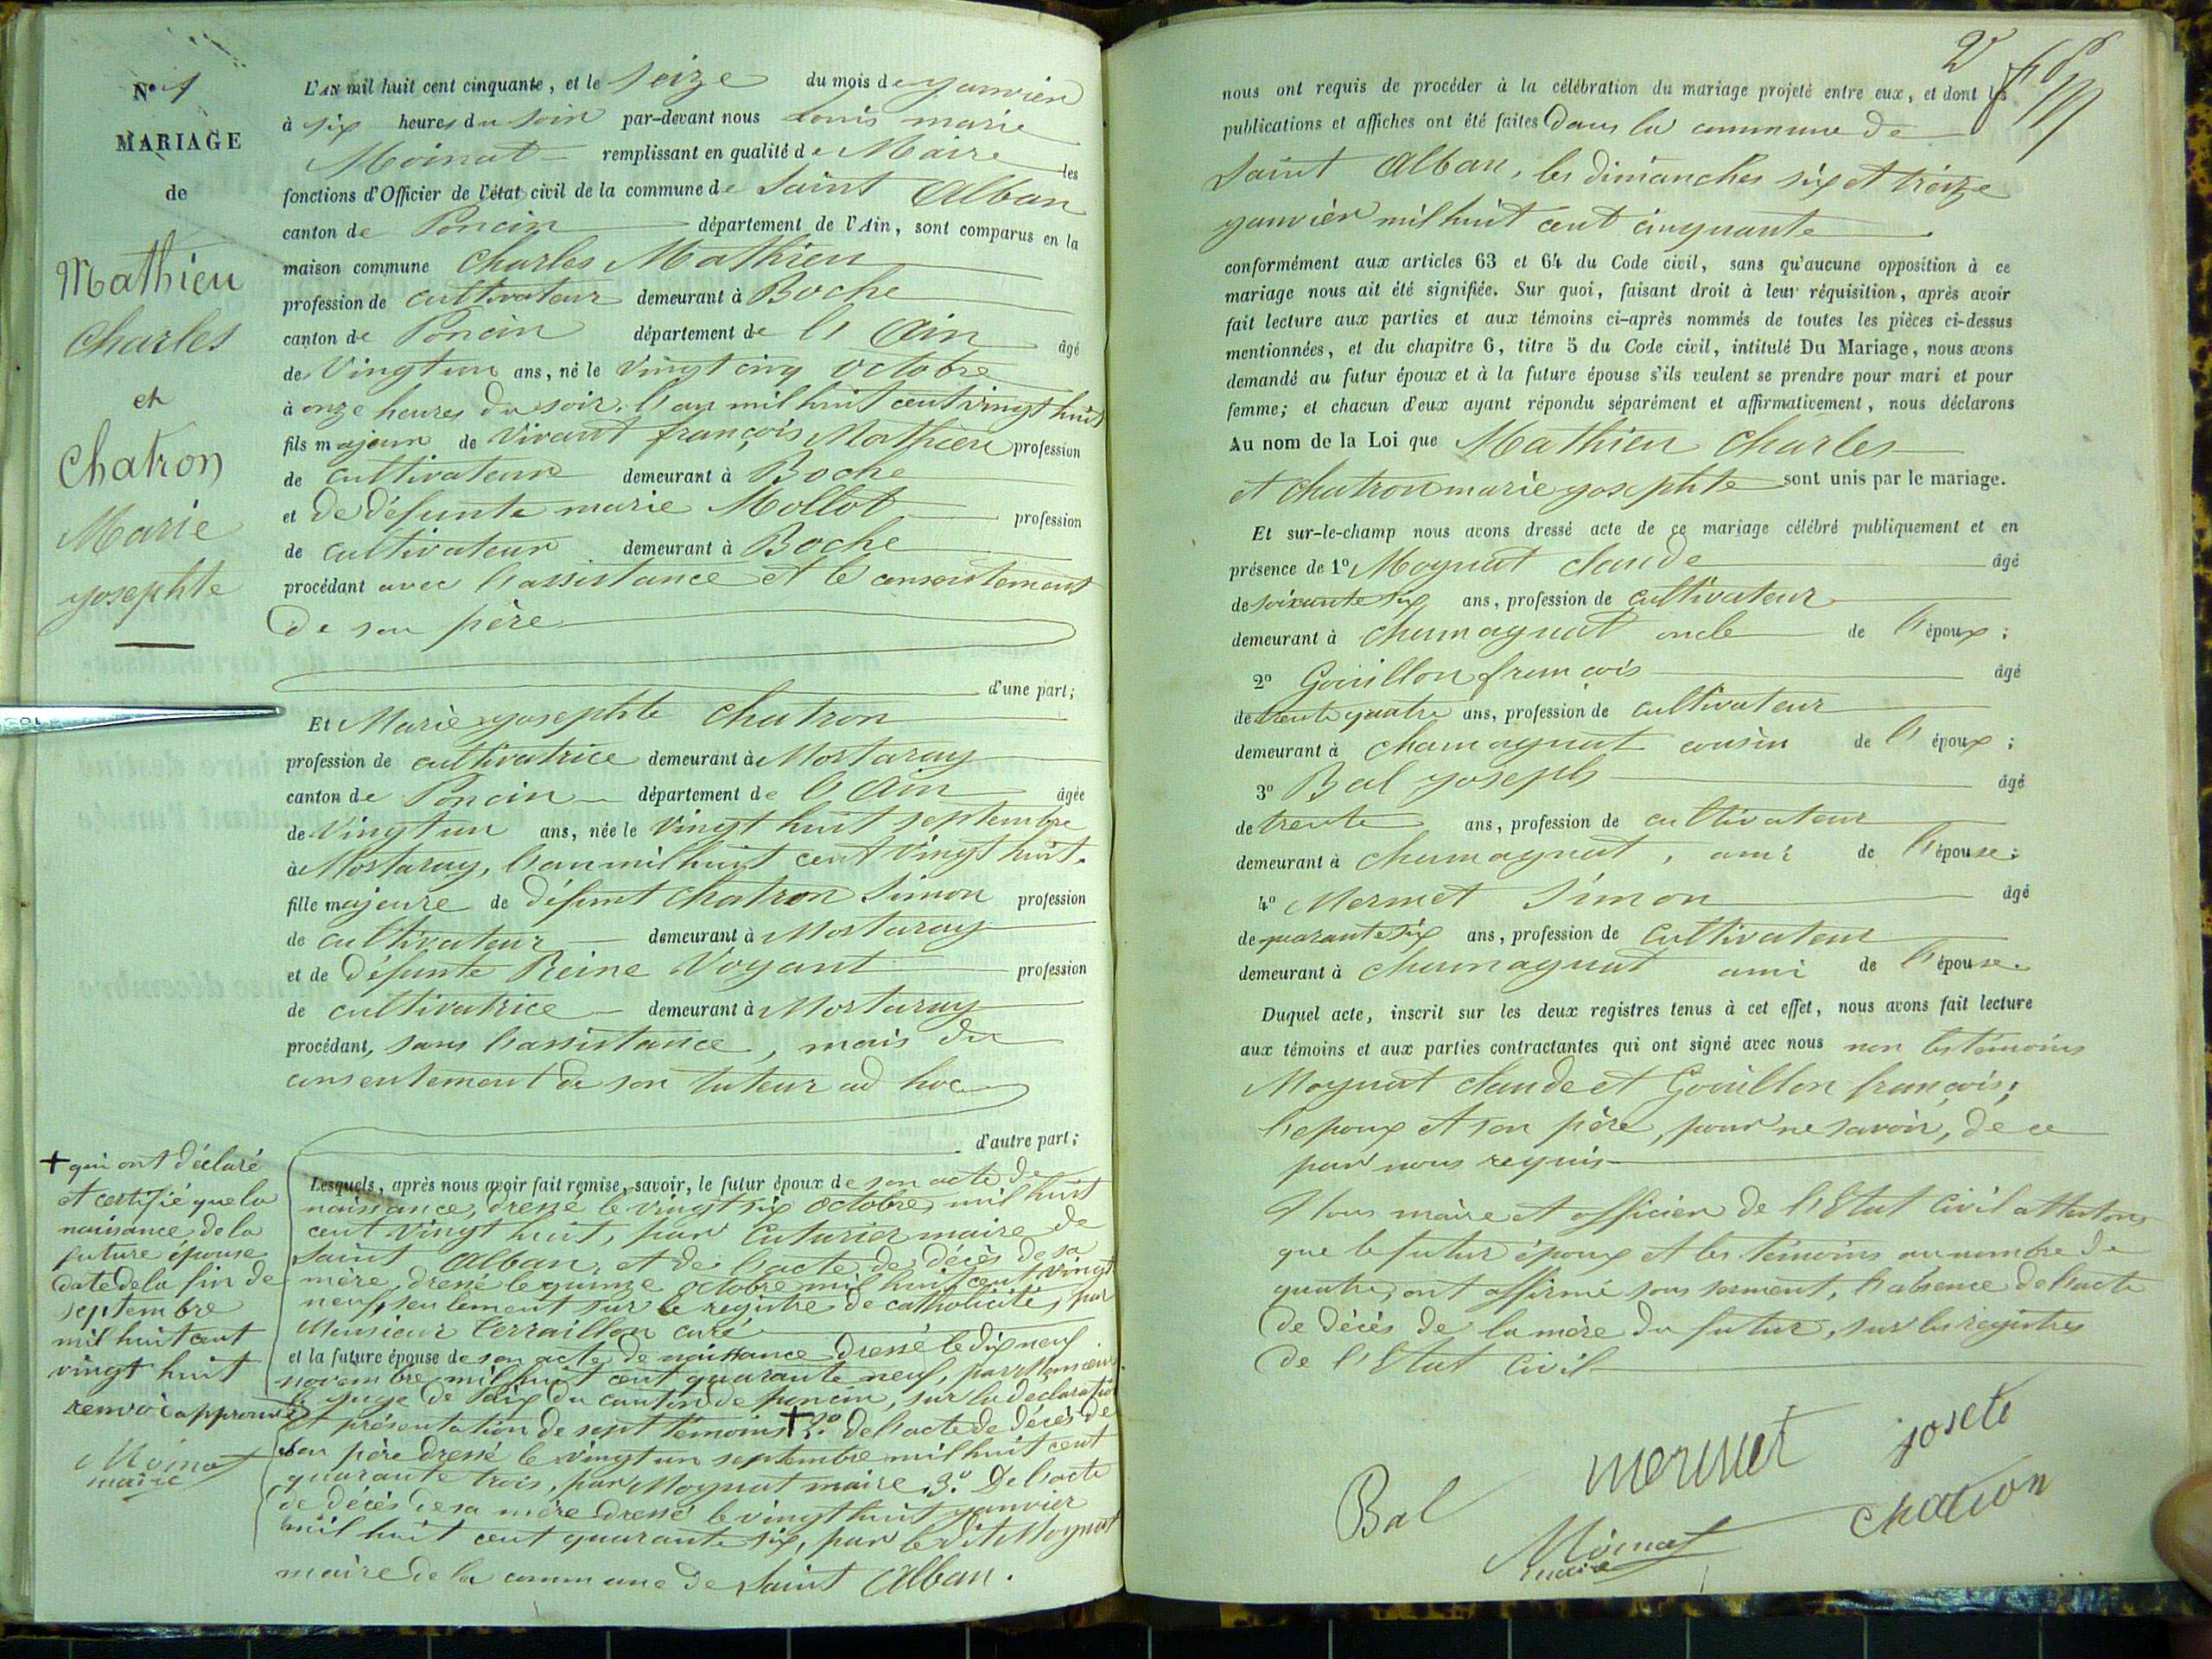 N° 1
MARIAGE
de
Mathieu
Charles
et
Chatron
Marie
yosephte
L'AN mil huit cent cinquante, et le Seize du mois de yanvier
à six heures du soir par-devant nous Louis marie
Moinat remplissant en qualité de Maire les
fonctions d'Officier de l'état civil de la commune de Saint Alban
canton de Poncin département de l'Ain, sont comparus en la
maison commune Charles Mathieu
profession de cultivateur demeurant à Boche
canton de Poncin département de l'Ain âgé
de Vingt un ans, né le Vingt cinq octobre
à onze heures du soir, l'an mil huit cent vingt huit
fils majeur de Vivant françois Mathieu profession
de cultivateur demeurant à Boche
et de défunte marie Mollot profession
de cultivateur demeurant à Boche
procédant avec l'assistance et le consentement
de son père
d'une part;
Et Marie yosephte Chatron
profession de cultivatrice demeurant à Mortaray
canton de Poncin département de l'Ain âgée
de Vingt un ans, née le Vingt huit septembre
à Mortaray, l'an mil huit cent Vingt huit.
fille majeure de défunt Chatron Simon profession
de cultivateur demeurant à Mortaray
et de défunte Reine Voyant profession
de cultivatrice demeurant à Mortaray
procédant, sans l'assistance, mais du
consentement de son tuteur ad hoc
d'autre part;
Lesquels, après nous avoir fait remise, savoir, le futur époux de son acte de
naissance, dressé le vingt six octobre mil huit
cent vingt huit, par Cuturier maire de
Saint Alban, et de l'acte de décès de sa
mère, dressé le quinze octobre mil huit cent vingt
neuf, seulement sur le registre de catholicité, par
Monsieur Terraillon curé
et la future épouse de son acte de naissance dressé le dix neuf
novembre mil huit cent quarante neuf, par Monsieur
le yuge de Paix du canton de poncin, sur la déclaration
et présentation de sept témoins + 2° de l'acte de décès de
son père dressé le vingt un septembre mil huit cent
quarante trois, par Moynat maire, 3° De l'acte
de décès de sa mère dressé le vingt huit yanvier
mil huit cent quarante six, par le dit Moynat
maire de la commune de Saint Alban.
+ qui ont déclaré
et certifié que la
naissance de la
future épouse
date de la fin de
septembre
mil huit cent
vingt huit
renvoi approuvé
Moinat
maire
2
nous ont requis de procéder à la célébration du mariage projeté entre eux, et dont les
publications et affiches ont été faites Dans la commune de
Saint Alban, les dimanches six et treize
yanvier mil huit cent cinquante
conformément aux articles 63 et 64 du Code civil, sans qu'aucune opposition à ce
mariage nous ait été signifiée. Sur quoi, faisant droit à leur réquisition, après avoir
fait lecture aux parties et aux témoins ci-après nommés de toutes les pièces ci-dessus
mentionnées, et du chapitre 6, titre 5 du Code civil, intitulé Du Mariage, nous avons
demandé au futur époux et à la future épouse s'ils veulent se prendre pour mari et pour
femme; et chacun d'eux ayant répondu séparément et affirmativement, nous déclarons
Au nom de la Loi que Mathieu Charles
et Chatron marie yosephte sont unis par le mariage.
Et sur-le-champ nous avons dressé acte de ce mariage célébré publiquement et en
présence de 1° Moynat claude âgé
de soixante six ans, profession de cultivateur
demeurant à chamagnat oncle de l'époux;
2° Gouillon françois âgé
de trente quatre ans, profession de cultivateur
demeurant à chamagnat cousin de l'époux;
3° Bal yoseph âgé
de trente ans, profession de cultivateur
demeurant à chamagnat, ami de l'épouse;
4° Mermet Simon âgé
de quarante six ans, profession de cultivateur
demeurant à chamagnat ami de l'épouse.
Duquel acte, inscrit sur les deux registres tenus à cet effet, nous avons fait lecture
aux témoins et aux parties contractantes qui ont signé avec nous non les témoins
Moynat claude et Gouillon françois,
l'époux et son père, pour ne savoir, de ce
par nous requis
Nous maire et officier de l'Etat Civil attestons
que le futur époux et les témoins au nombre de
quatre, ont affirmé sous serment, l'absence de l'acte
de décès de la mère du futur, sur les registres
de l'Etat Civil
Bal
mermet
josete
chatron
Moinat
maire